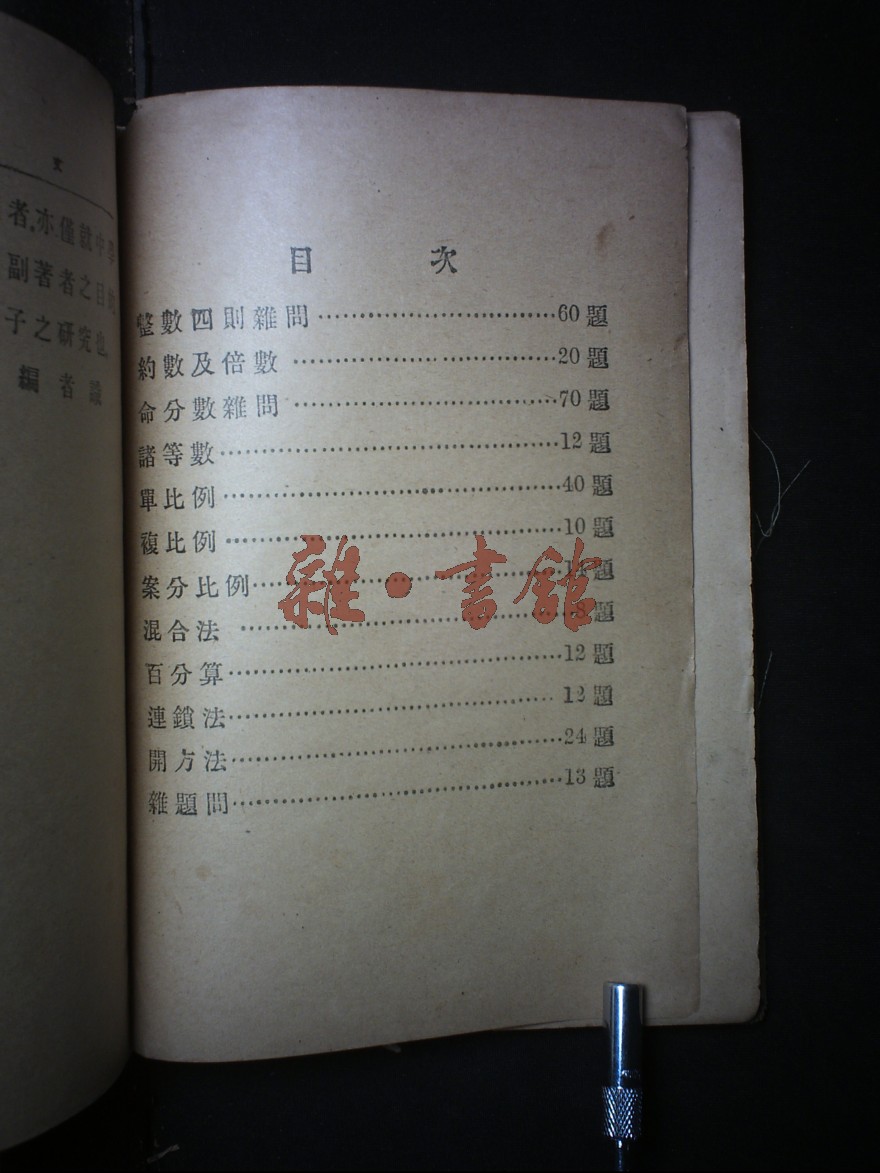 者,亦僅就中學
副著者之目的
子之研究也
編者識
目次
整數四則雜問……60題
約數及倍數……20題
命分數雜問……70題
諸等數……12題
單比例……40題
複比例……10題
案分比例……題
混合法……8題
百分算……12題
連鎖法……12題
開方法……24題
雜題問……13題
雜·書館